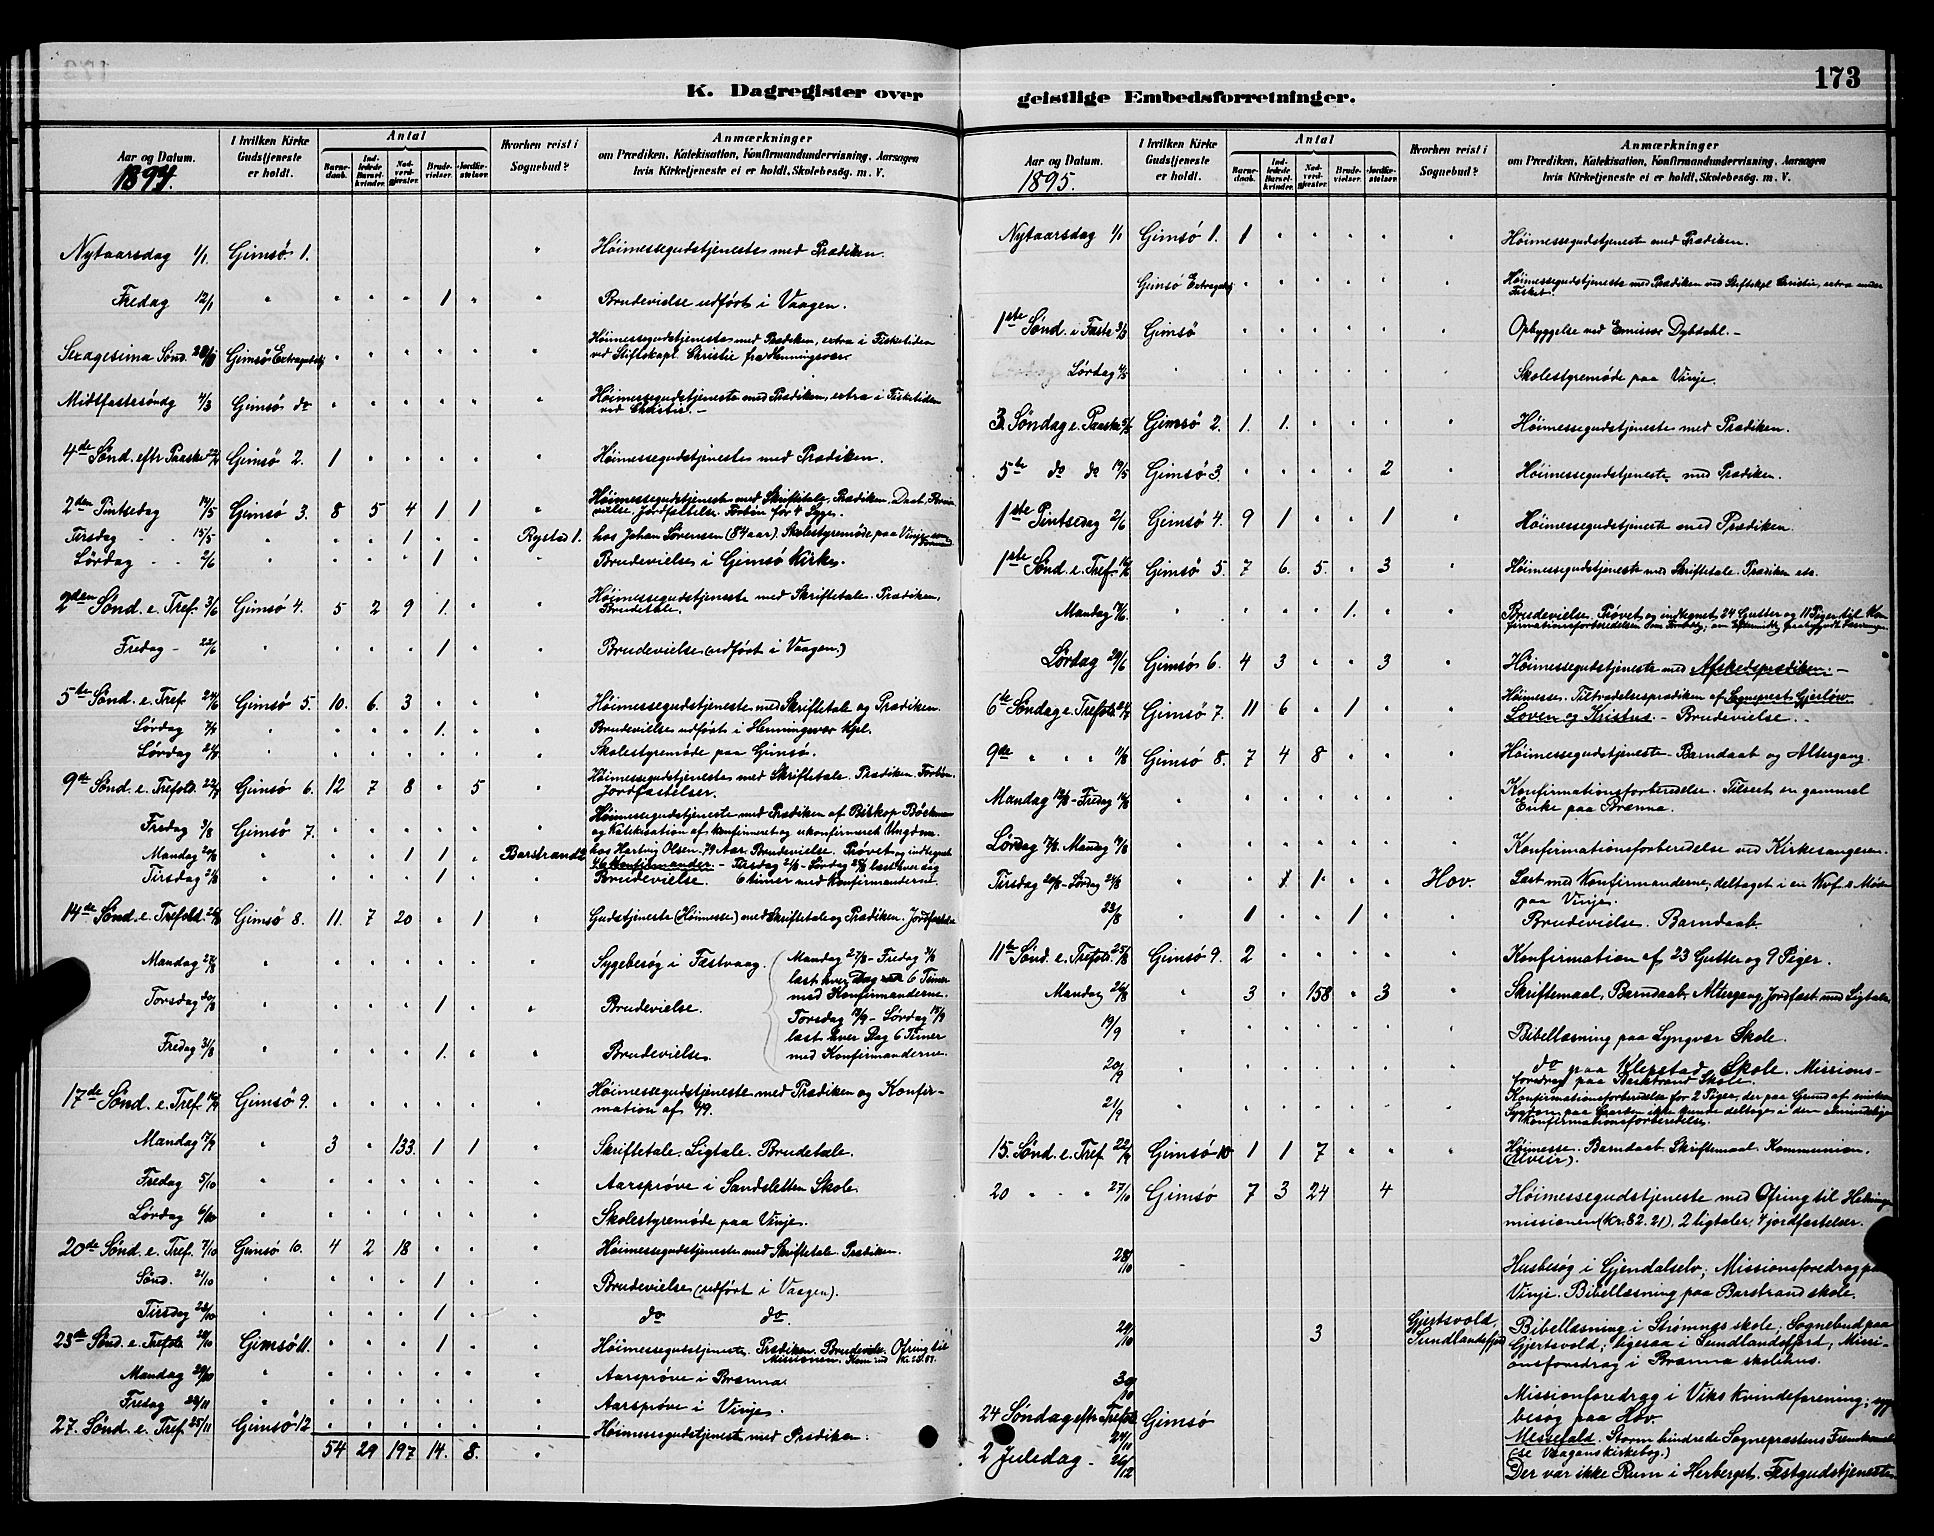 173
K. Dagregister over
geistlige Embedsforretninger.
Aar og Datum.
1894.
I hvilken Kirke Gudstjeneste er holdt.
Antal
Barnedaab.
Indledede Barselkvinder.
Nadverdgjester.
Brudevielser.
Jordfæstelser.
Hvorhen reist i Sognebud?
Anmærkninger
om Prædiken, Katekisation, Konfirmandundervisning, Aarsagen
hvis Kirketjeneste ei er holdt, Skolebesøg. m. V.
Nytaarsdag 1/1. Gimsø 1. Høimessegudstjeneste med Prædiken.
Fredag 12/1 1 Brudevielse udført i Vaagen.
Sexagesima Sønd. Gimsø Extragudstj. Høimessegudstjeneste med Prædiken, extra i Fisketiden
ved Stiftskapl. Christie fra Henningsvær.
Midtfastesøndg 4/3 Gimsø do Høimessegudstjeneste med Prædiken, extra i Fisketiden
ved Christie. –
4de Sønd. eftr Paaske Gimsø 2. 1 Høimessegudstjeneste med Prædiken.
2den Pintsedag 14/5 Gimsø 3. 8 5 4 1 1 Høimessegudstjeneste med Skriftetale, Prædiken, Daab,
vielse, Jordfæstelse. Forbøn for 4 Syge.
Tirsdag 15/5 1 Rystad 1. hos Johan Sørensen (84 aar). Skolestyremøde paa Vinje
Lørdag 2/6 1 Brudevielse i Gimsø Kirke.
2den Sønd. e. Tref. 3/6 Gimsø 4. 5 2 9 1. Høimessegudstjeneste med Skriftetale. Prædiken,
Brudetale.
Fredag - 22/6 1 Brudevielse (udført i Vaagen.)
5te Sønd. e. Tref 24/6 Gimsø 5. 10. 6. 3 Høimessegudstjeneste med Skriftetale og Prædiken.
Lørdag 7/7 1. Brudevielse udført i Henningsvær Kpl.
Lørdag 21/7 Skolestyremøde paa Gimsø.
9de Sønd. e. Trefold. 22/7 Gimsø 6. 12 7 8 5 Høimessegudstjeneste med Skriftetale. Prædiken. Forbøn.
Jordfæstelser.
Fredag 3/8 Gimsø 7. Høimessegudstjeneste med Prædiken af Biskop Bøckman
og Katekisation af konfirmeret og ukonfirmeret Ungdom.
Mandag 20/8 1 1 Barstrand 2 hos Hartvig Olsen 79 Aar. Brudevielse. Prøvet og indtegnet
46 Konfirmander – Tirsdag 21/8 – Lørdag 25/8 læst hver dag
Tirsdag 21/8 1 Brudevielse. 6 timer med Konfirmanderne.
14de Sønd. e. Trefold. 26/8 Gimsø 8. 11. 7 20 1 Gudstjeneste (Høimesse) med Skriftetale og Prædiken.
Mandag 27/8 Sygebesøg i Fæstvaag.
Mandag 27/8 – Fredag 31/8
læst hver Dag 6 Timer
med Konfirmanderne.
Torsdag 30/8 1 Brudevielse.
Torsdag 13/9 – Lørdag 15/9
læst hver Dag 6 Timer
Fredag 31/8 1. Brudevielse.
med Konfirmanderne.
17de Sønd. e. Tref. 16/9 Gimsø 9. Høimessegudstjeneste med Prædiken og Konfir-
mation af 49.
Mandag 17/9 3 133. 1 1 Skriftetale. Ligtale. Brudetale.
Fredag 5/10 Aarsprøve i Sandsletten Skole.
Lørdag 6/10 Skolestyremøde paa Vinje.
20de Sønd. e. Tref. 7/10 Gimsø 10. 4 2 18 Høimessegudstjeneste med Skriftetale. Prædiken.
Sønd. 21/10 1 Brudevielse (udført i Vaagen).
Tirsdag 23/10 1 do do.
23de Sønd. e. Trefold. 28/10 Gimsø 11. 1 Høimessegudstjeneste. Prædiken. Brudeviels. Ofring til
Missionen.
Mandag 29/10 Aarsprøve i Brænna
Fredag 23/11 Aarsprøve i Vinje.
27. Sønd. e. Tref. 25/11 Gimsø 12. Høimessegudstjeneste med Prædiken.
54 29 197 14. 8.
Aar og Datum.
1895.
I hvilken Kirke Gudstjeneste er holdt.
Antal
Barnedaab.
Indledede Barselkvinder.
Nadverdgjester.
Brudevielser.
Jordfæstelser.
Hvorhen reist i Sognebud?
Anmærkninger
om Prædiken, Katekisation, Konfirmandundervisning, Aarsagen
hvis Kirketjeneste ei er holdt, Skolebesøg m. V.
Nytaarsdag 1/1 Gimsø 1. 1 Høimessegudstjeneste med Prædiken.
Gimsø Extragudstj Høimessegudstjeneste med Prædiken ved Stiftskpl. Christie, extra under
Fisket.
1ste Sønd. i Faste 3/3 Gimsø Opbyggelse ved Emissær Dybdahl. –
Lørdag 4/5 Skolestyremøde paa Vinje.
3. Søndag e. Paaske 5/5 Gimsø 2. 1. 1. Høimessegudstjeneste med Prædiken.
5te do do 19/5 Gimsø 3. 2 Høimessegudstjeneste med Prædiken.
1ste Pintsedag 2/6 Gimsø 4. 9 1 1 Høimessegudstjeneste med Prædiken.
1ste Sønd. e. Tref. 16/6 Gimsø 5. 7 6. 5. 3 Høimessegudstjeneste med Skriftetale. Prædiken etc.
Mandag 17/6. 1. Brudevielse. Prøvet og indtegnet 24 Gutter og 11 Piger til Kon-
firmationsforberedelsen
Lørdag 29/6 Gimsø 6. 4 3 3 Høimessegudstjeneste med Afskedsprædiken. –
6te Søndag e. Trefold. 21/7 Gimsø 7. 11 6 1 Høimesse. Tiltrædelsesprædiken af Sogneprest Gjerløw.
Loven og Kristus. – Brudevielse. –
9de 11/8 Gimsø 8. 7 4 8 Høimessegudstjeneste – Barndaab og Altergang.
Mandag 12/8 – Fredag 16/8 Konfirmationsforberedelse. Tilseet en gammel
Enke paa Brænna.
Lørdag 17/8. Mandag 19/8 Konfirmationsforberedelse ved Kirkesangeren.
Tirsdag 20/8 – Lørdag 24/8 1 1. Hov. Læst med Konfirmanderne; deltaget i en Kvf.s Møde
paa Vinje.
23/8 1 1 Brudevielse. Barndaab.
11te Sønd. e. Trefold. 25/8 Gimsø 9. 2 Konfirmation af 23 Gutter og 9 Piger.
Mandag 26/8 3 158 3 Skriftemaal, Barndaab, Altergang, Jordfæst. med Ligtale.
19/9 Bibellæsning paa Lyngvær Skole.
20/9 do paa Klepstad Skole. Missions-
foredrag paa Barstrand Skole.
21/9 Konfirmationsforberedelse for 2 Piger, der paa Grund af smitsom
Sygdom paa Gaarden ikke kunde deltage i den almindelige
Konfirmationsforberedelse.
15. Sønd. e. Tref. 22/9 Gimsø 10 1 1 7 Høimesse. Barndaab. Skriftemaal. Kommunion.
(Uveir).
20 27/10 Gimsø 7 3 24 4 Høimessegudstjeneste med Ofring til Hedninge-
missionen (kr. 82.21), 2 ligtaler, 4 jordfæstelser.
28/10 Husbesøg i Gjendalselv; Missionsforedrag paa
Vinje. Bibellæsning paa Barstrand skole.
29/10 3 Gjertsvold, Sundlandsfjord Bibellæsning i Strømnæs skole; Sognebud paa
Gjertsvold; ligesaa i Sundlandsfjord; Missi-
onsforedrag i Brænna skolehus.
30/10 Missionforedrag i Viks Kvindeforening; syge-
besøg paa Hov.
24 Søndag eftr Trefold. 24/11 Gimsø Messefald. Storm hindrede Sogneprestens Fremkomst
(se Vaagans kirkebog.)
2 Juledag – 26/12 Der var ikke Rum i Herberget. Festgudstjeneste